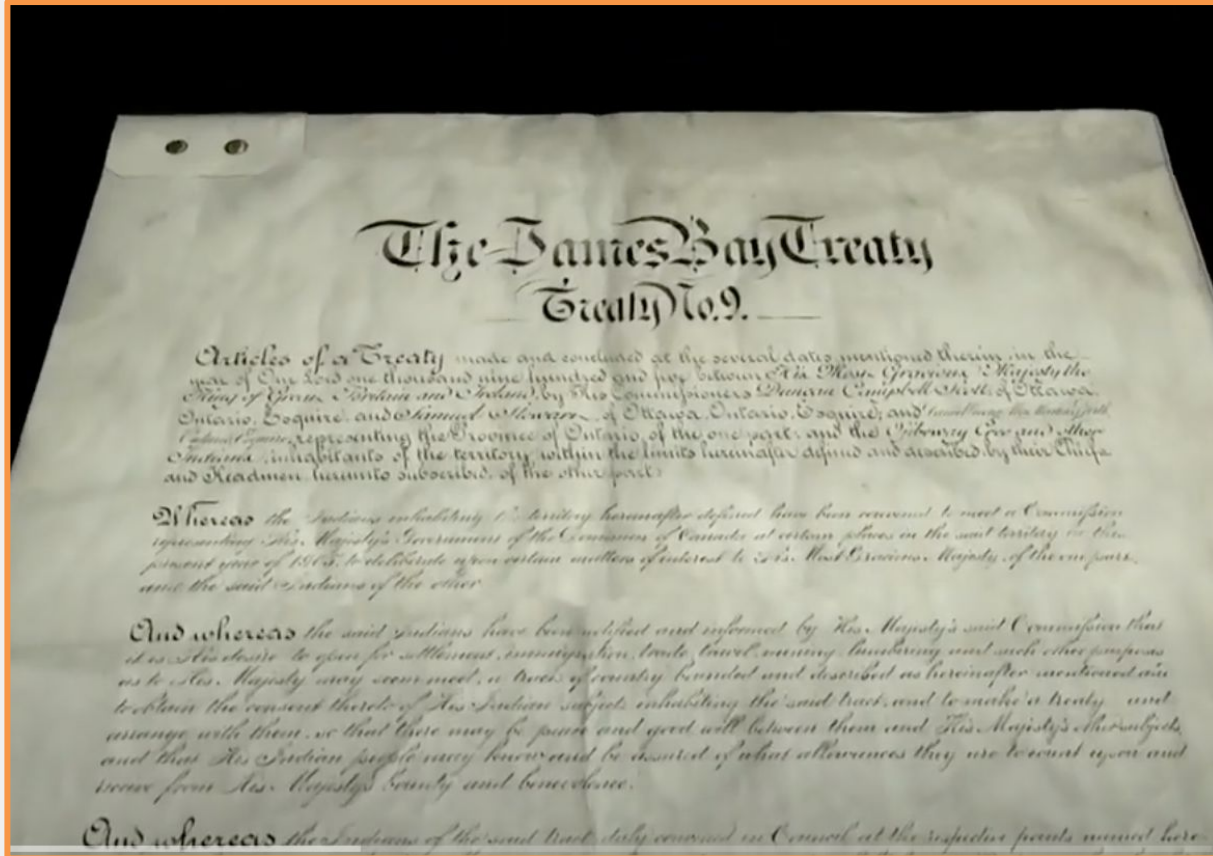 The James Bay Treaty
Treaty No. 9.
Articles of a Treaty made and concluded at the several dates mentioned therein, in the
year of Our Lord one thousand nine hundred and five between His Most Gracious Majesty the
King of Great Britain and Ireland, by His Commissioners Duncan Campbell Scott, of Ottawa,
Ontario, Esquire, and Samuel Stewart, of Ottawa, Ontario, Esquire; and
Esquire, representing the Province of Ontario, of the one part; and the Ojibeway, Cree and other
Indians, inhabitants of the territory within the limits hereinafter defined and described, by their Chiefs
and Headmen hereunto subscribed, of the other part:
Whereas the Indians inhabiting the territory hereinafter defined have been convened to meet a Commission
representing His Majesty's Government of the Dominion of Canada at certain places in the said territory in this
present year of 1905, to deliberate upon certain matters of interest to His Most Gracious Majesty, of the one part,
and the said Indians of the other
And whereas the said Indians have been notified and informed by His Majesty's said Commission that
it is His desire to open for settlement, immigration, trade, travel, mining, lumbering and such other purposes
as to His Majesty may seem meet, a tract of country bounded and described as hereinafter mentioned and
to obtain the consent thereto of His Indian subjects inhabiting the said tract, and to make a treaty and
arrange with them, so that there may be peace and good will between them and His Majesty's other subjects,
and that His Indian people may know and be assured of what allowances they are to count upon and
receive from His Majesty's bounty and benevolence.
And whereas the Indians of the said tract, duly convened in Council at the respective points named here